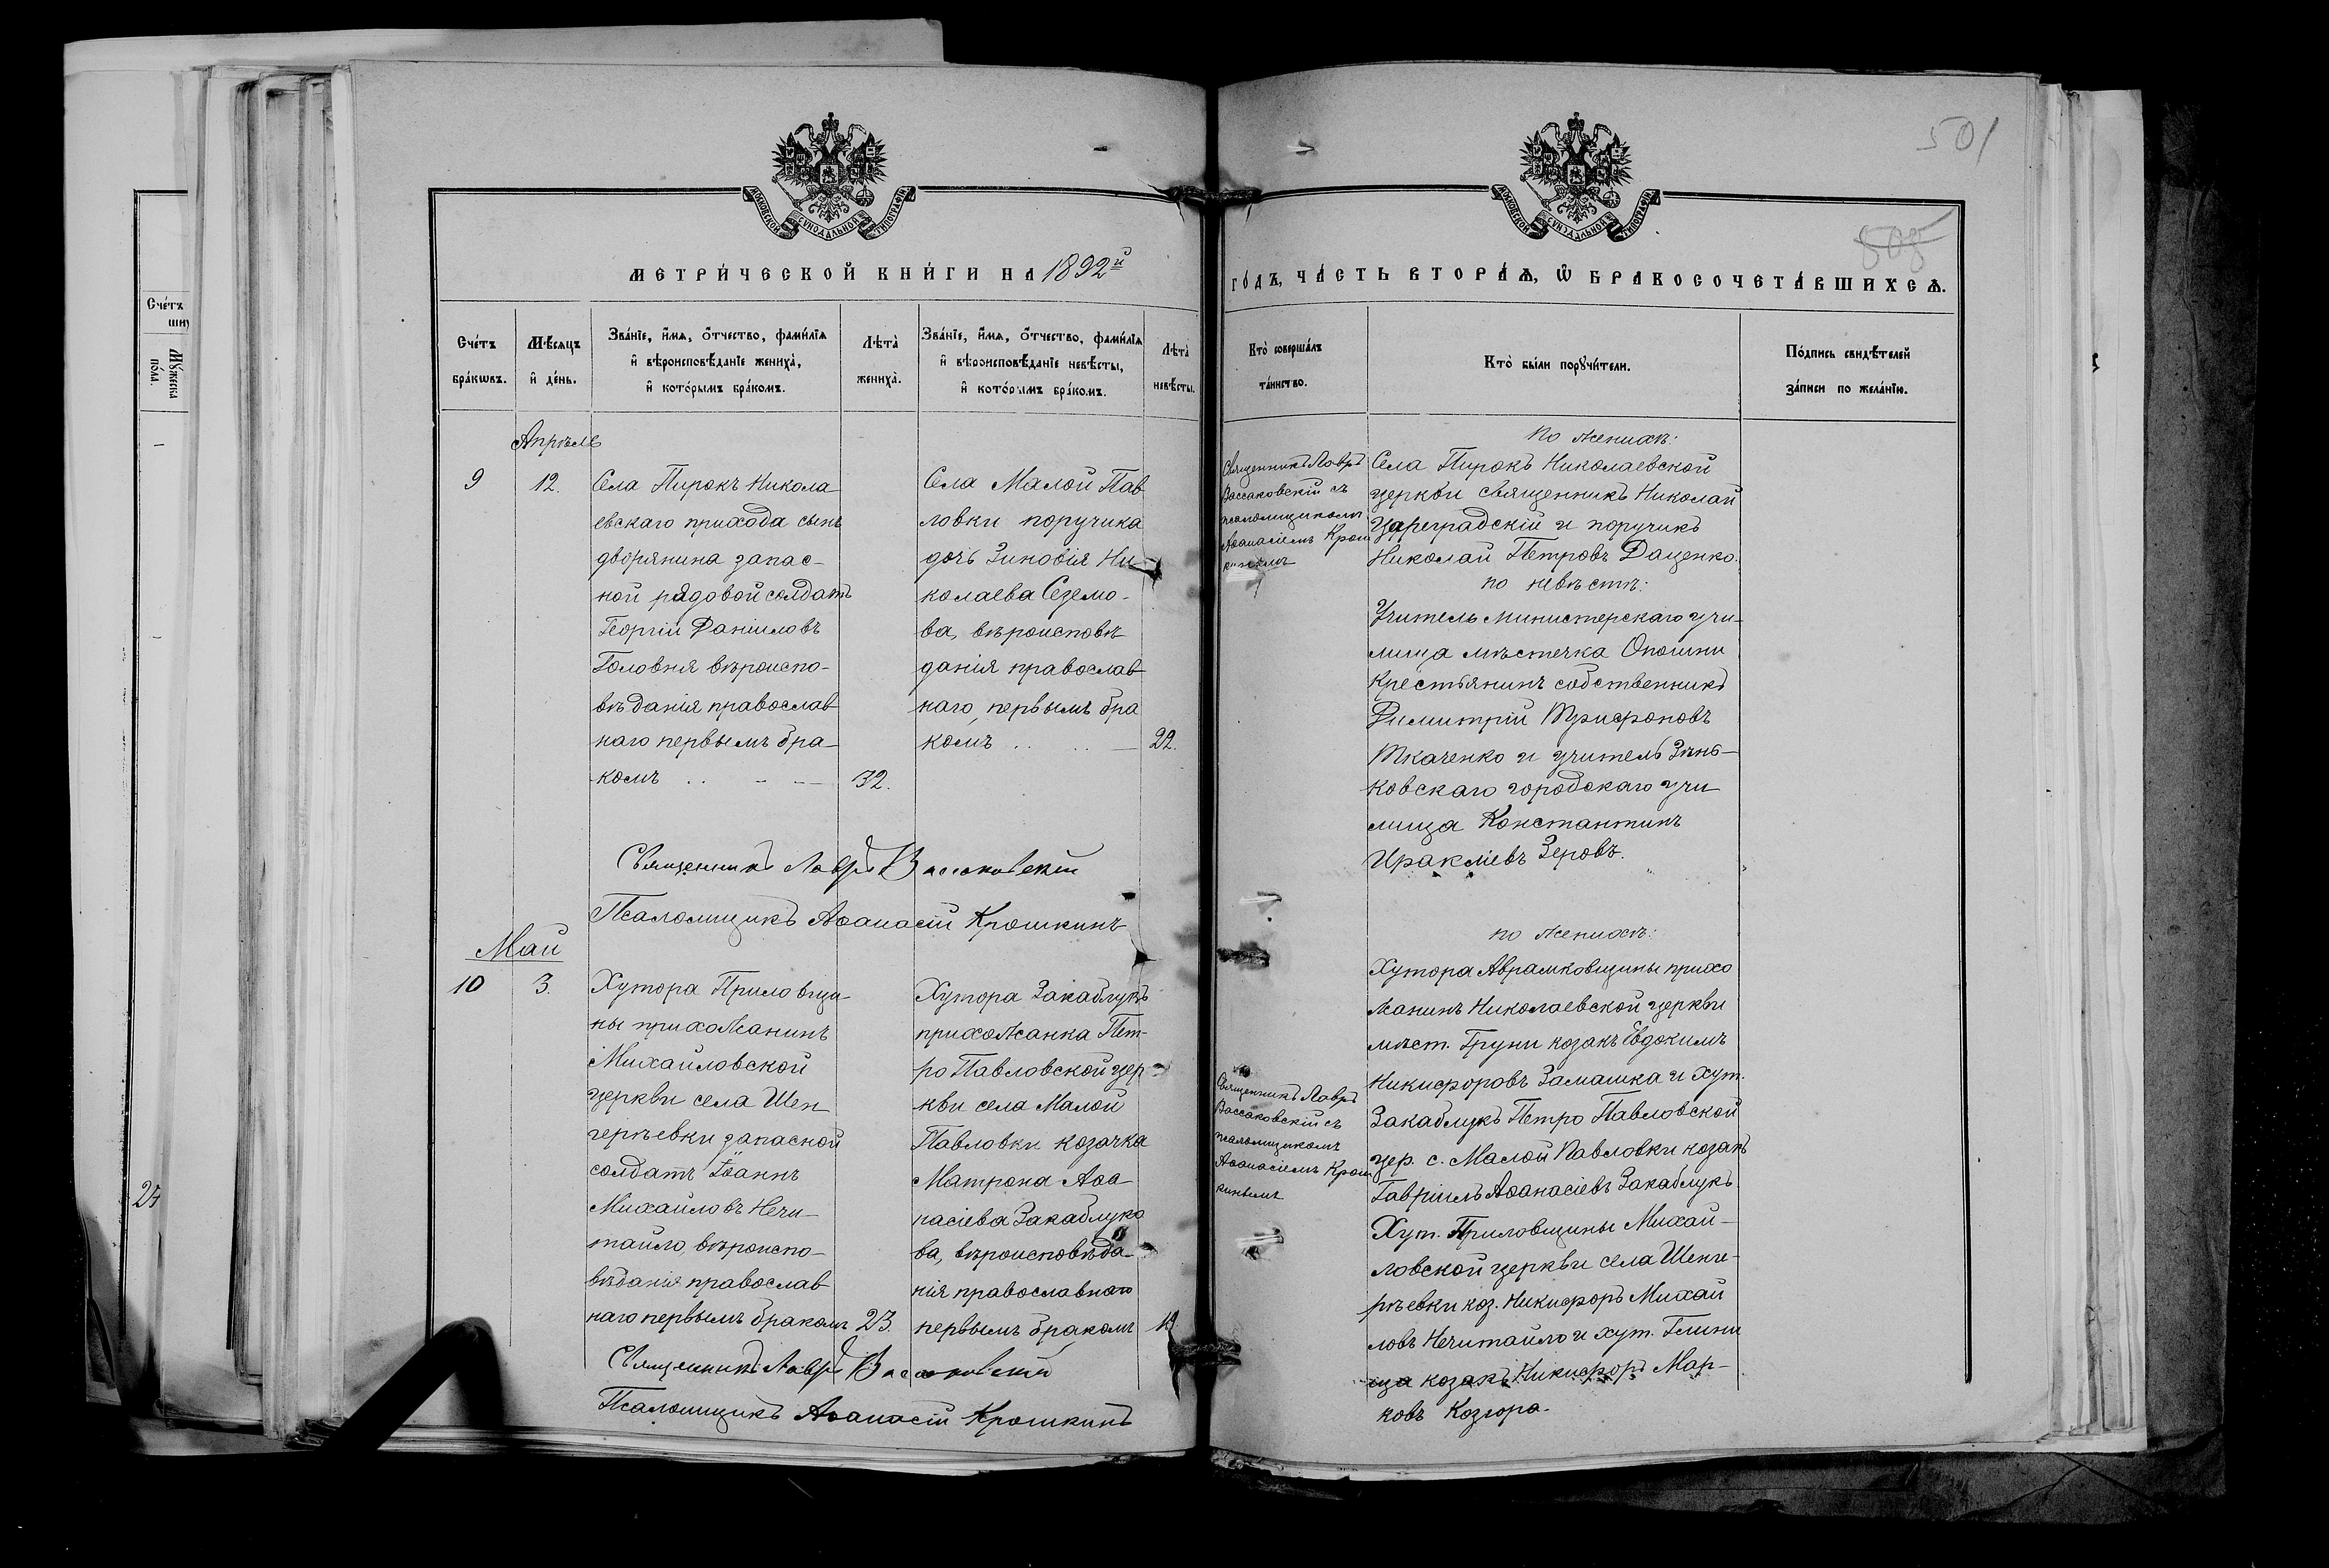 501
508
МОСКОВСКОЙ СѴНОДАЛЬНОЙ ТИПОГРАФІИ
МОСКОВСКОЙ СѴНОДАЛЬНОЙ ТИПОГРАФІИ
МЕТРИ́ЧЕСКОЙ КНИ́ГИ НА 1892й
ГО́ДЪ, ЧА́СТЬ ВТОРА́Ѧ, Ѽ БРАКОСОЧЕТА́ВШИХСѦ.
Сче́тъ
бра́кѡвъ.
Мѣ́сѧцъ
и҆ де́нь.
Зва́нїе, и҆́мѧ, ѻ҆́тчество, фами́лїѧ
и҆ вѣроисповѣ́данїе жениха̀,
и҆ кото́рымъ бра́комъ.
Лѣта̀
жениха̀.
Зва́нїе, и҆́мѧ, ѻ҆́тчество, фами́лїѧ
и҆ вѣроисповѣ́данїе невѣ́сты,
и҆ кото́рымъ бра́комъ.
Лѣта̀
невѣ́сты.
Кто̀ соверша́лъ
та́инство.
Кто̀ бы́ли порꙋчи́тели.
По́дпись свидѣ́телей
за́писи по жела́нїю.
Сче́тъ
Мꙋ́жеска
по́ла.
24
Апрѣль
9
12.
Села Пирокъ Никола
евскаго прихода сынъ
дворянина запас-
ной рядовой солдатъ
Георгій Даніиловъ
Головня вѣроиспо-
вѣданія православ
наго первымъ бра-
комъ
32.
Села Малой Пав
ловки поручика
дочь Зиновія Ни-
колаева Сезмо-
ва, вѣроисповѣ
данія православ
наго, первымъ бра
комъ
22.
Священникъ Лавръ
Вассаковскій съ
псаломщикомъ
Аѳанасіемъ Крош
кинымъ
по женихѣ:
Села Пирокъ Николаевской
церкви священникъ Николай
Цареградскій и поручикъ
Николай Петровъ Даценко.
по невѣстѣ:
Учитель министерскаго учи-
лища мѣстечка Опошни
крестьянинъ собственникъ
Димитрій Трифоновъ
Ткаченко и учитель Зѣнь-
ковскаго городскаго учи
лища Константинъ
Иракліевъ Зеровъ.
Священникъ Лавръ Вассаковскій
Псаломщикъ Аѳанасій Крошкинъ
Май
10
3.
Хутора Приловщи-
ны прихожанинъ
Михайловской
церкви села Шен
герѣевки запасной
солдатъ Іоаннъ
Михайловъ Нечи-
тайло, вѣроиспо-
вѣданія православ
наго первымъ бракомъ
23.
Хутора Закаблукъ
прихожанка Пет-
ро Павловской цер
кви села Малой
Павловки козачка
Матрона Аѳа
насіева Закаблуко
ва, вѣроисповѣда-
нія православнаго
первымъ бракомъ
Священникъ Лавръ
Вассаковскій съ
псаломщикомъ
Аѳанасіемъ Крош
кинымъ
по женихѣ:
Хутора Аврамковщины прихо
жанинъ Николаевской церкви
мѣст. Груни козакъ Евдокимъ
Никифоровъ Замашка и хут.
Закаблукъ Петро Павловской
цер. с. Малой Павловки козакъ
Гавріилъ Аѳанасіевъ Закаблукъ
Хут. Приловщины Михай-
ловской церкви села Шенге-
рѣевки коз. Никифоръ Михай
ловъ Нечитайло и хут. Глини
ща козакъ Никифоръ Мар-
ковъ Козюра.
Священникъ Лавръ Вассаковскій
Псаломщикъ Аѳанасій Крошкинъ